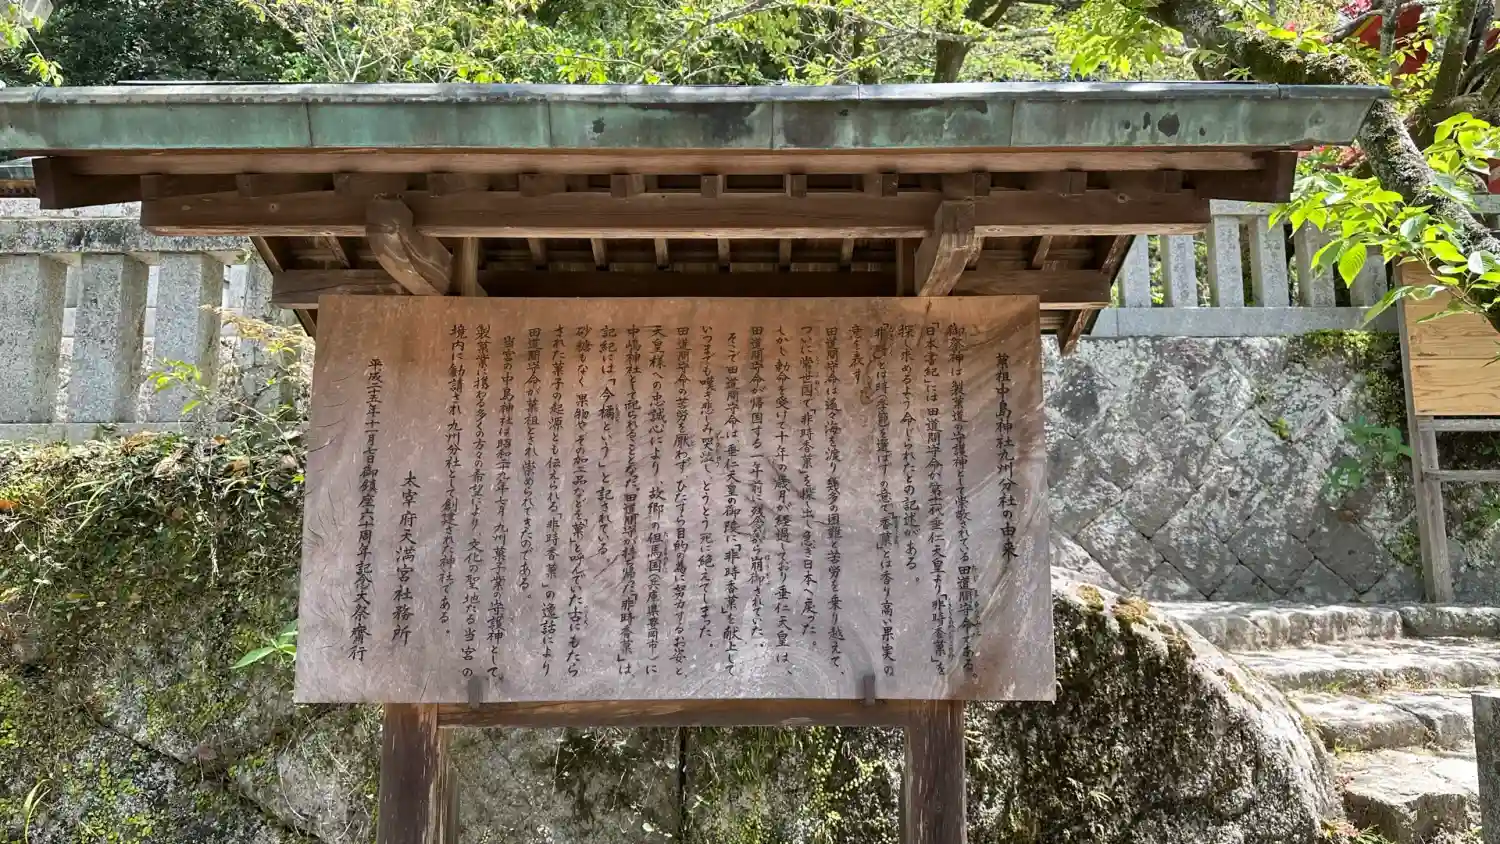 菓祖中島神社九州分社の由来
御祭神は製菓道の守護神として崇敬されている田道間守命である。
「日本書紀」には田道間守命が第十一代垂仁天皇より「非時香菓」を
探し求めるよう命じられたとの記述がある。
「非時」とは時（季節）を選ばずの意で「香菓」とは香り高い果実の
意を表す。
田道間守命は遥々海を渡り幾多の困難と苦労を乗り越えて、
ついに常世国で「非時香菓」を探し出し急ぎ日本へ戻った。
しかし勅命を受けて十年の歳月が経過しており垂仁天皇は、
田道間守命が帰国する一年前に残念ながら崩御されていた。
そこで田道間守命は垂仁天皇の御陵に「非時香菓」を献上して
いつまでも嘆き悲しみ哭泣し、どうとう死に絶えてしまった。
田道間守命の苦労を厭わず、ひたすら目的の為に努力するお姿と
天皇様への忠誠心により、故郷の但馬国（兵庫県豊岡市）に
中嶋神社として祀られることとなった。田道間守の持ち帰った「非時香菓」は、
記紀には「今橘という」と記されている。
砂糖もなく果物やその加工品などを「菓」と呼んでいた古にもたら
された菓子の起源とも伝えられる「非時香菓」の逸話により
田道間守命が菓祖とされ崇められてきたのである。
当宮の中島神社は昭和二十九年七月、九州菓子業の守護神として、
製菓業に携わる多くの方々の希望により、文化の聖地たる当宮の
境内に勧請され九州分社として創建された神社である。
太宰府天満宮社務所
平成二十五年十一月七日御鎮座六十周年記念大祭齋行